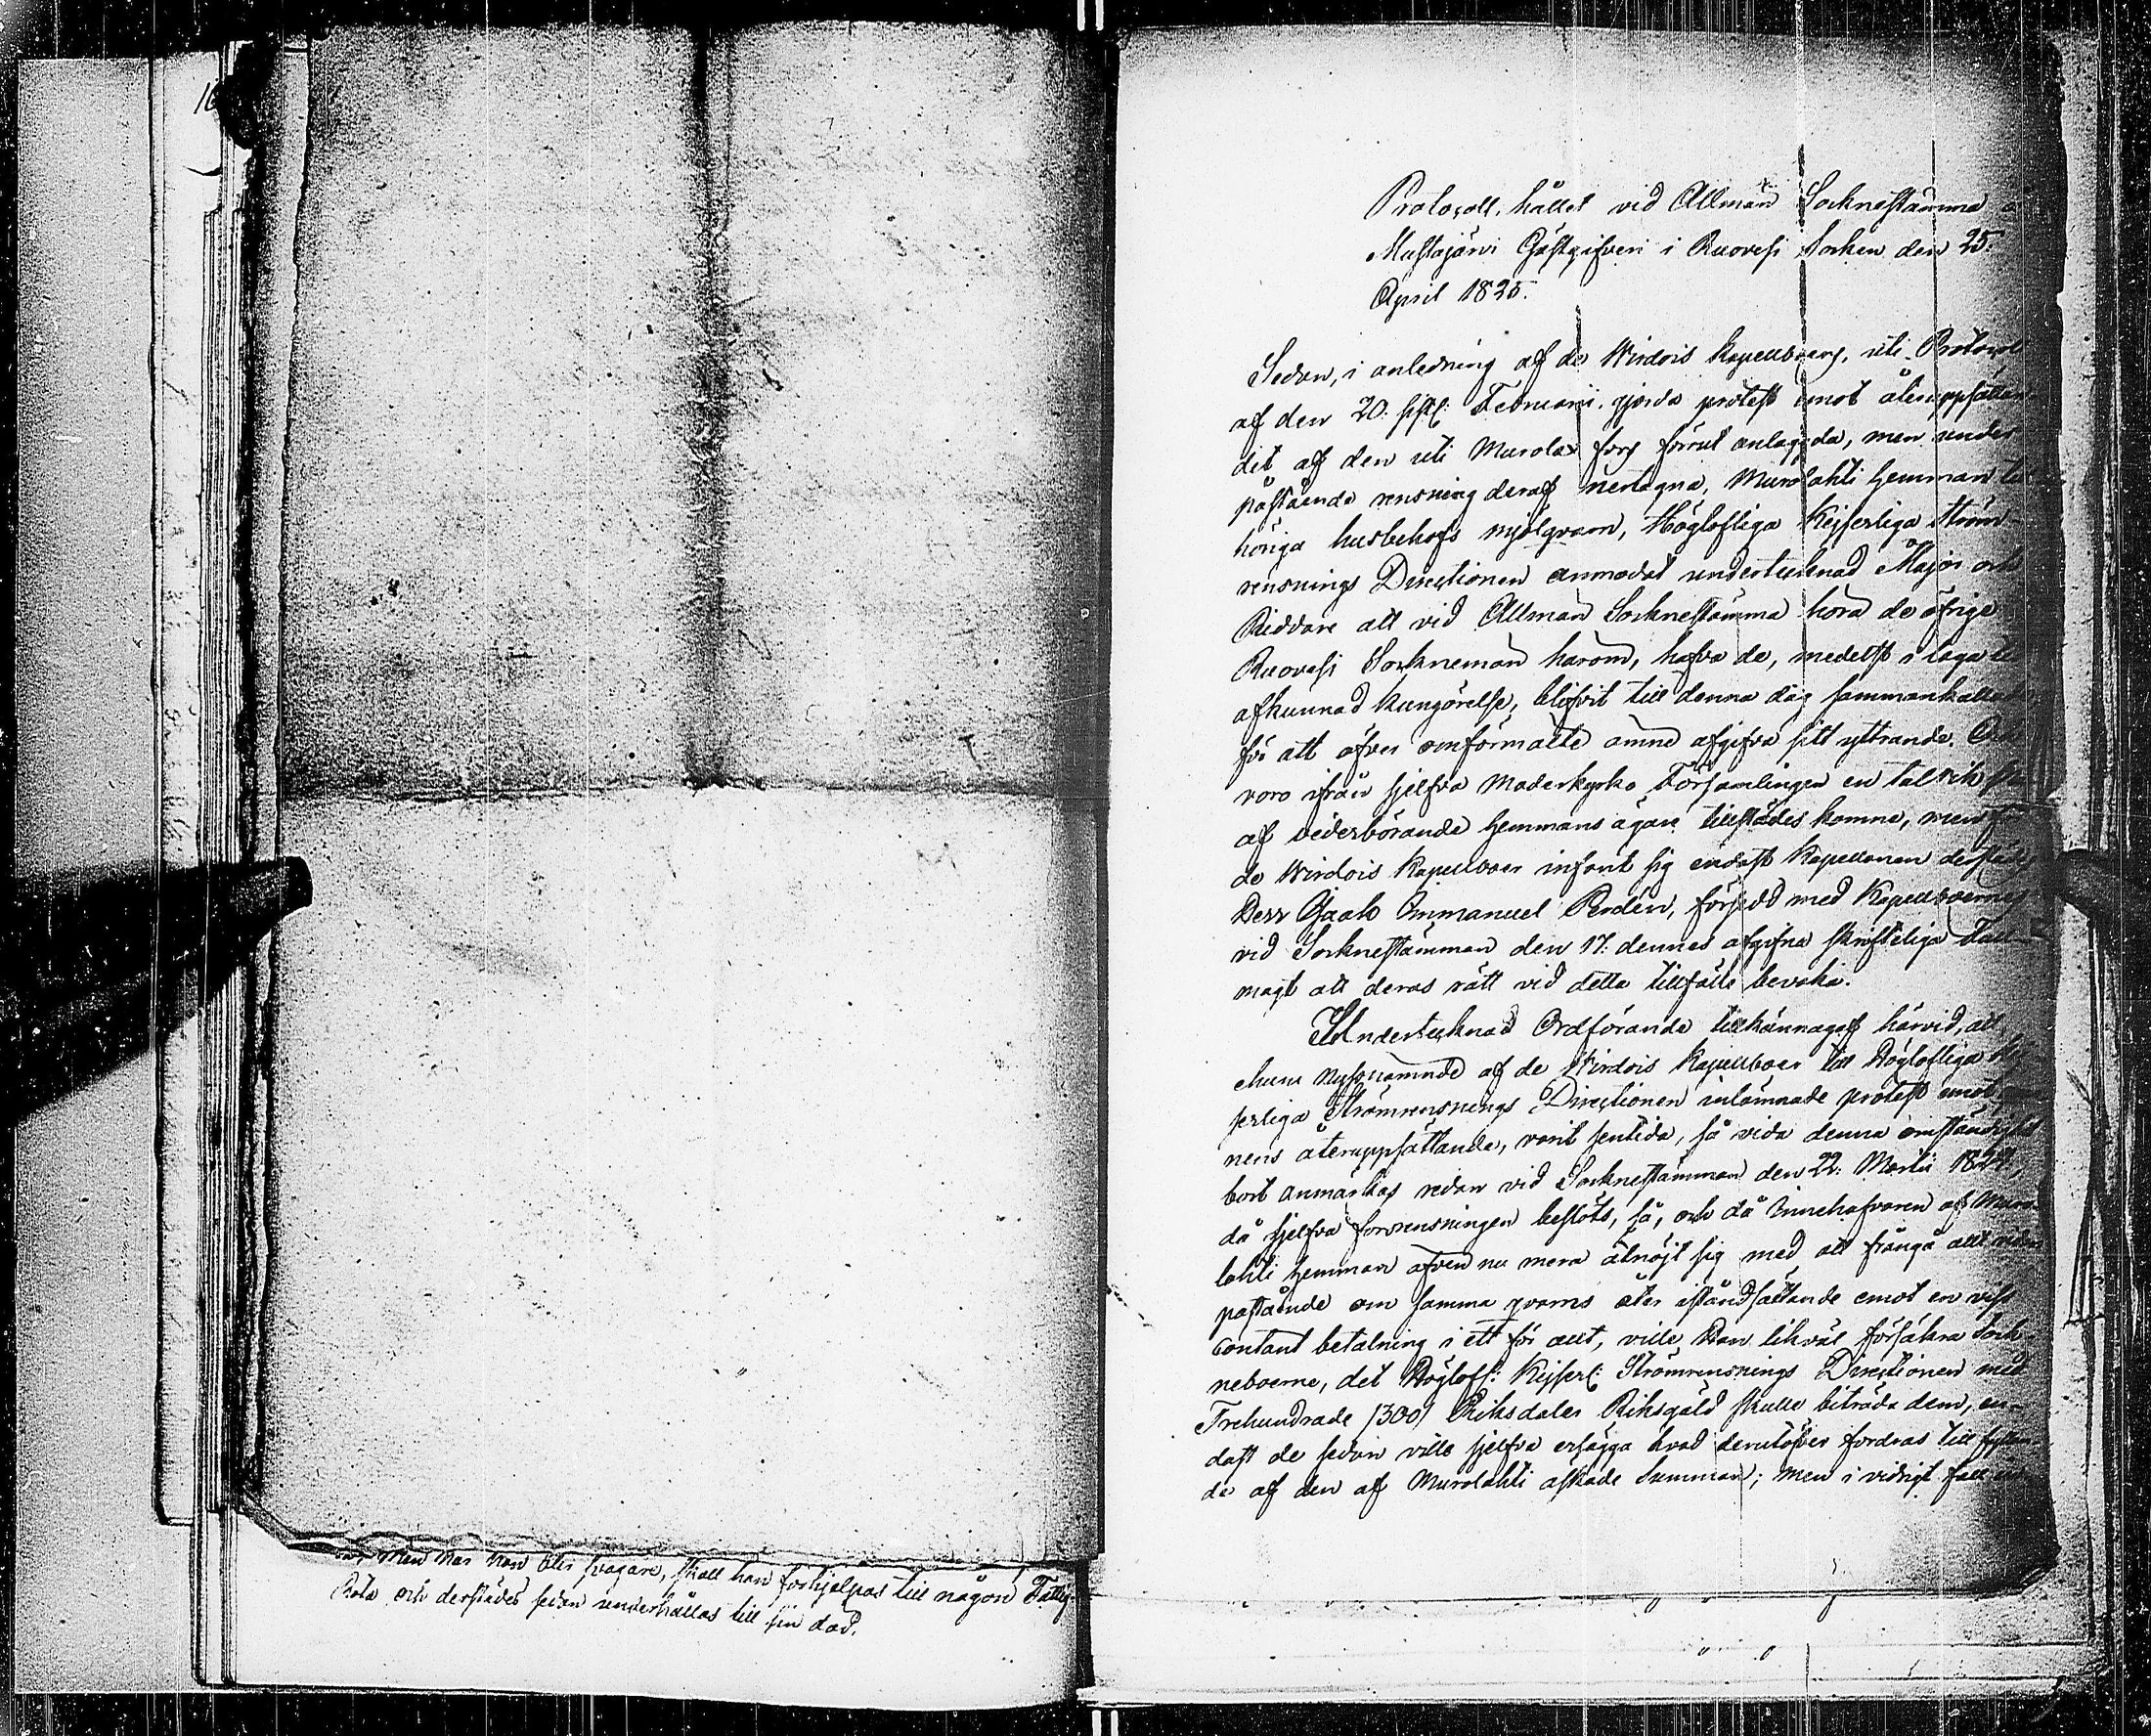 16
men när han blir svagare, skall han förhjelpas till någon Fattig-
Rota och derstädes sedan underhållas till sin död.
Protocoll, hållet vid Allmän Socknestämma å
Mustajärvi Gästgifveri i Ruovesi Socken den 25.
April 1825.
Sedan, i anledning af de Wirdois Kapellboers, uti Protocoll
af den 20. sistl: Februarii gjorda protest emot återuppsättan-
det af den uti Murolax fors förrut anlaggda, men under
påstående rensning deraf nertagna, Murolahti hemman till-
höriga husbehofs mjölqvarn, Höglofliga Kejserliga Ström-
rensnings Directionen anmodat undertecknad Major och
Riddare att vid Allmän Socknestämma höra de öfrige
Ruovesi Socknemän härom, hafva de, medelst i laga tid
afkunnad kungörelse, blifvit till denna dag sammankallade
för att öfver omförmälte ämne afgifva sitt yttrande. Och
voro ifrån sjelfva Moderkyrko Församlingen en talrik
af vederbörande hemmans ägare tillstädes komne, men för
de Wirdois Kapellboer infant sig endast Kapellanen derstädes
Herr Jaako Emmanuel Perdén, försedd med Kapellboernes
vid Socknestämman den 17. dennes afgifna skrifteliga Full-
magt att deras rätt vid detta tillfälle bevaka.
Undertecknad Ordförande tillkännagaf härvid, att
ehuru nyssnämnde af de Wirdois Kapellboer till Höglofliga Kej-
serliga Strömrensnings Directionen inlämnade protest emot qvar-
nens återuppsättande, varit sentida, så vida denna omständighet
bort anmärkas redan vid Socknestämman den 22. Martii 1824,
då sjelfva forsrensningen beslöts, så, och då Innehafvaren af Muro-
lahti hemman äfven nu mera åtnöjt sig med att frångå allt vidare
påstående om samma qvarns åter iståndsättande emot en viss
contant betalning i ett för allt, ville Han likväl försäkra Sock-
neboerne, det Höglofl: Kejserl: Strömrensnings Directionen med
Trehundrade /300/ Riksdaler Riksgäld skulle biträda dem, en-
dast de sedan ville sjelfva ersägga hvad derutöfver fordras till fyllan-
de af den af Murolahti äskade Summan; men i vidrigt fall